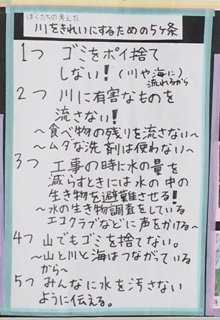 ぼくたちの考えた
川をきれいにするための5ヶ条
1つ ゴミをポイ捨て
しない！(川や海に
流れるから)
2つ 川に有害なものを
流さない！
～食べ物の残りを流さない～
～ムダな洗剤は使わない～
3つ 工事の時に水の量を
減らすときには水の中の
生き物を避難させる！
～水の生き物調査をしている
エコクラブなどに声をかける～
4つ 山でもゴミを捨てない。
～山と川と海はつながている
から～
5つ みんなに水を汚さない
ように伝える。